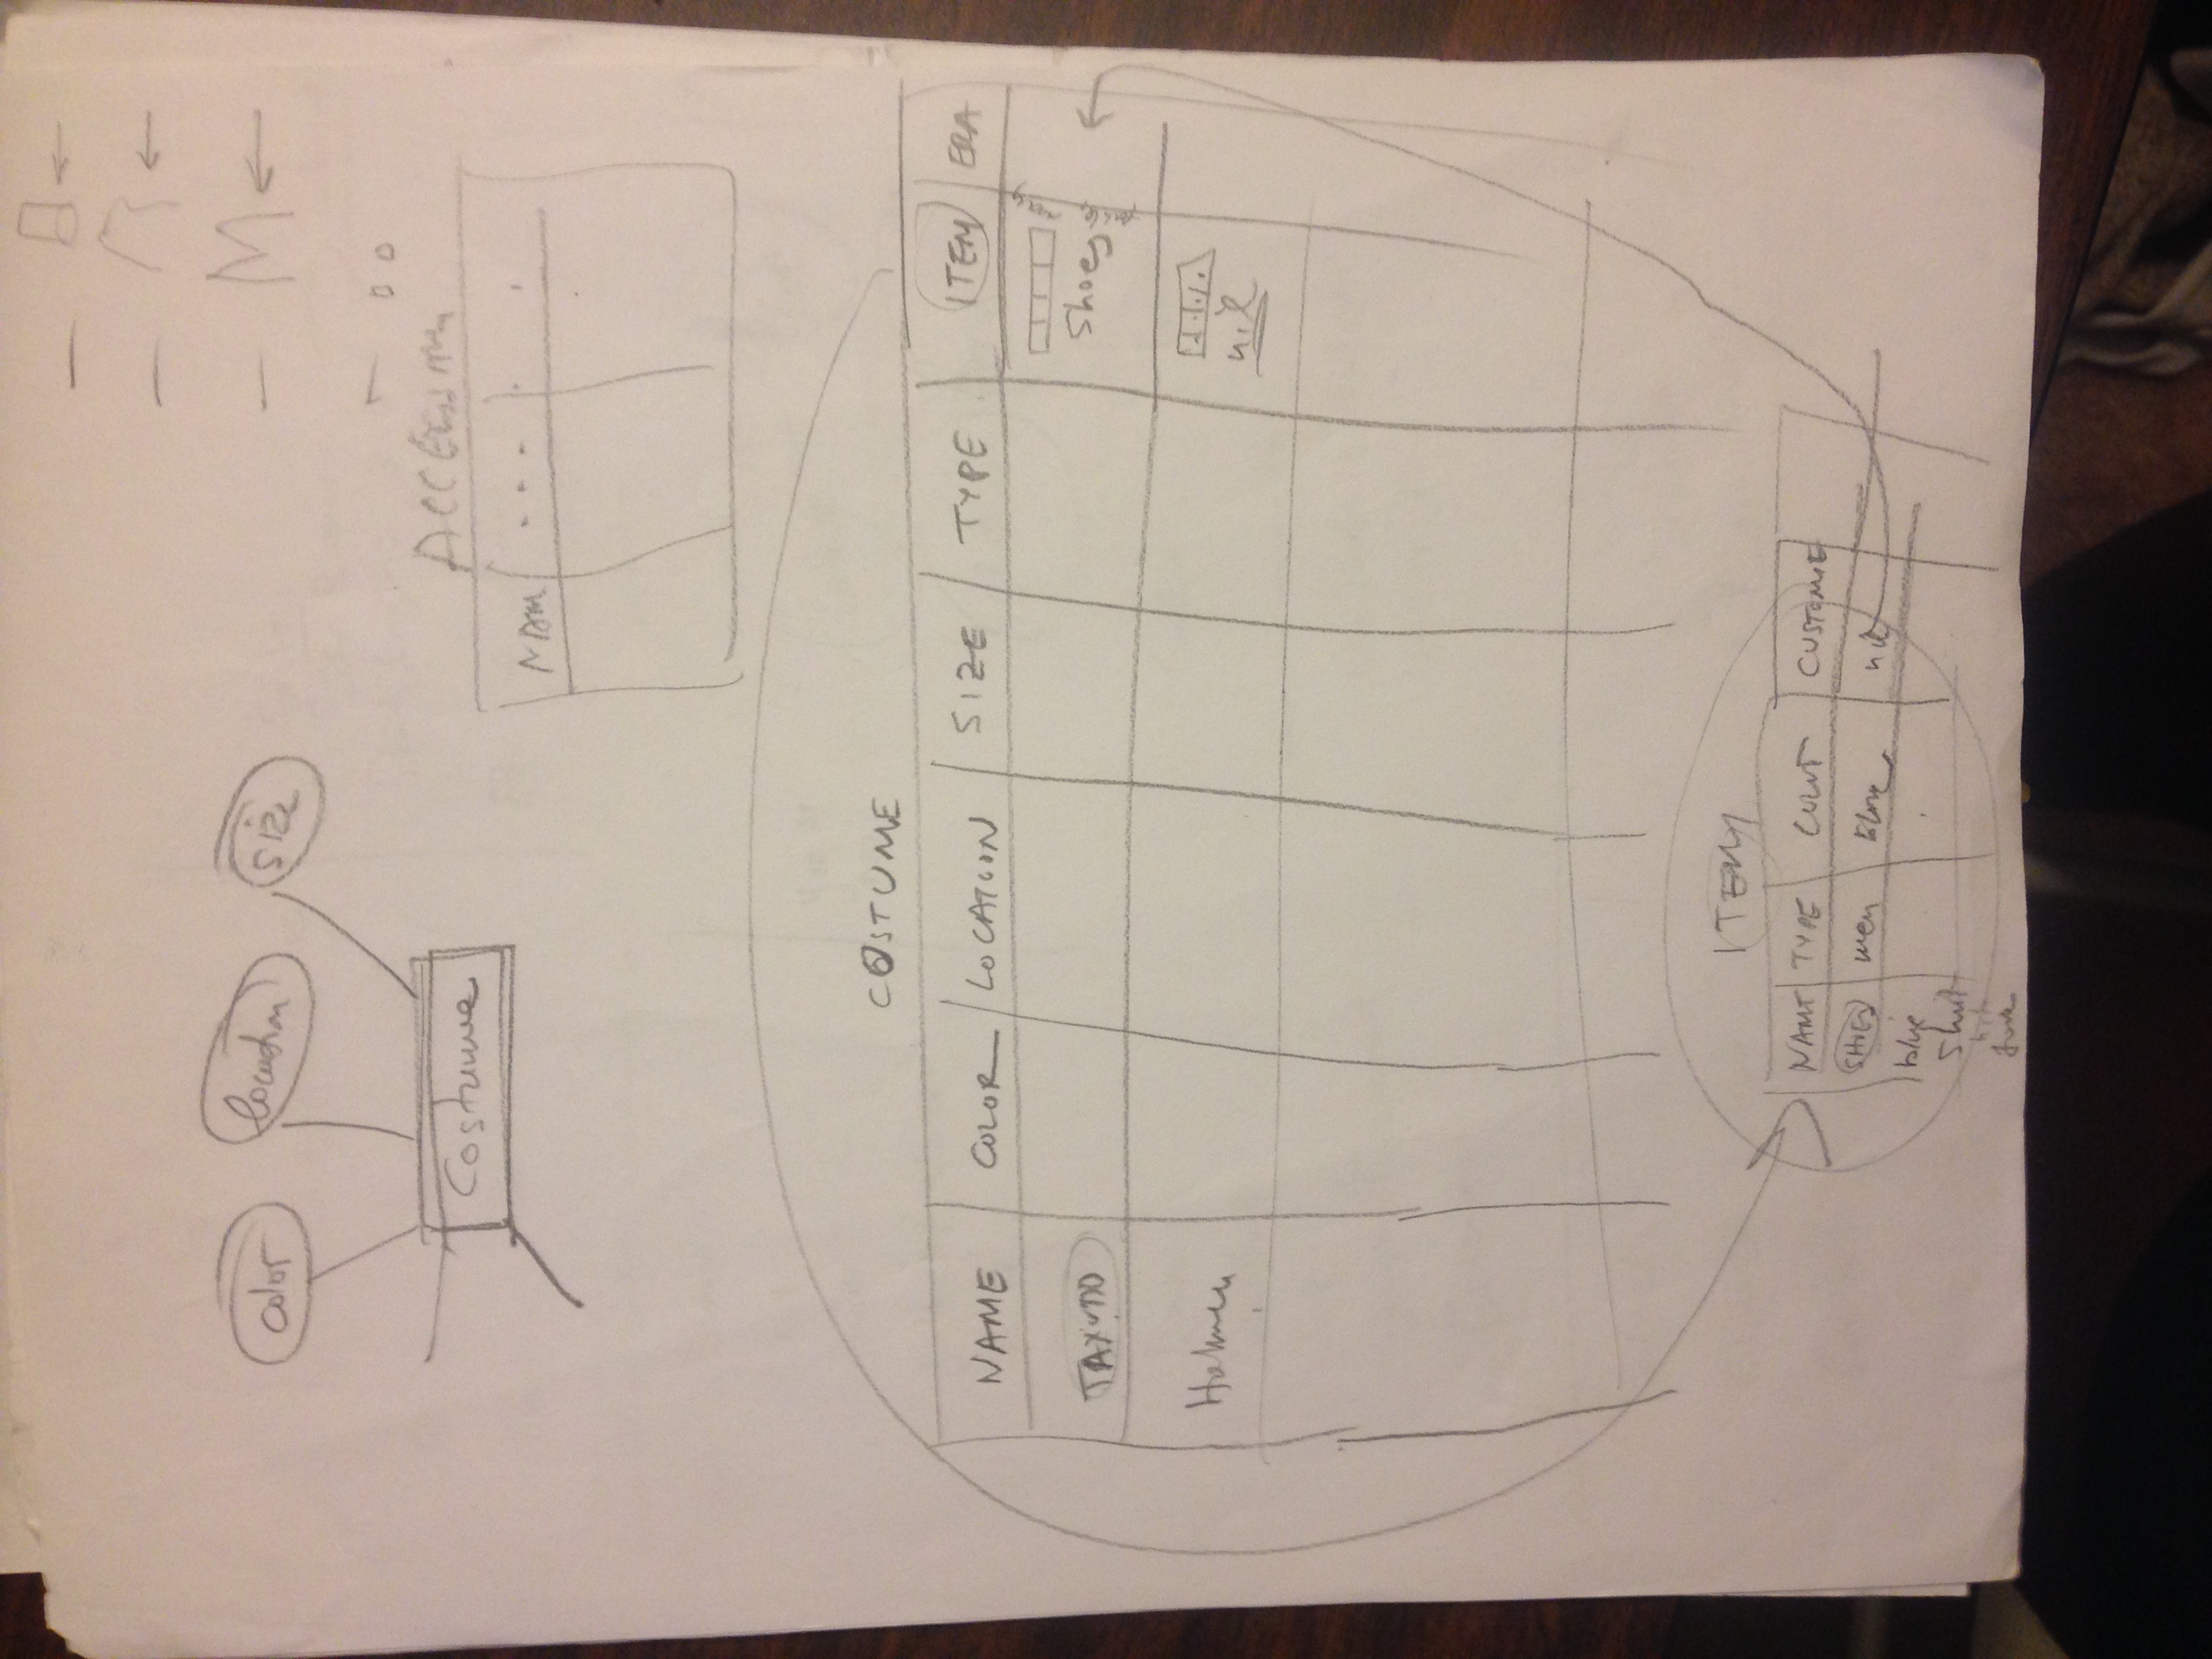 color location size
Costume
M
NAM
COSTUME
NAME COLOR LOCATION SIZE TYPE ITEM ERA
Shoes
nil
ITEM
NAME TYPE COLOR CUSTOME
SHOES men blue nil
blue
Shirt